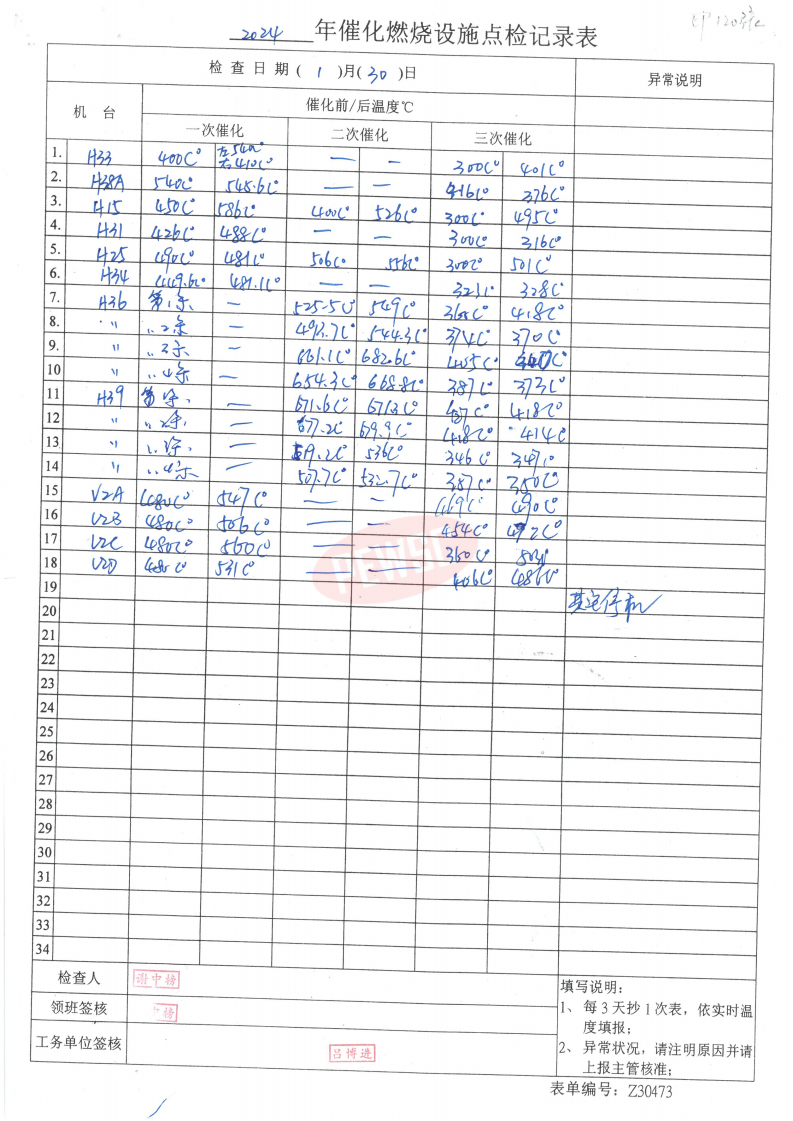 2024 年催化燃烧设施点检记录表
检查日期( 1 )月( 30 )日
异常说明
机 台
催化前/后温度℃
一次催化 二次催化 三次催化
1. H33 400C° 左540C° 右410C° — — 300C° 401C°
2. H38A 540C° 545.6C° — — 416C° 376C°
3. H15 450C° 586C° 400C° 526C° 300C° 495C°
4. H31 426C° 488C° — — 300C° 316C°
5. H25 490C° 481C° 506C° 556C° 300C° 501C°
6. H34 449.6C° 481.1C° — — 323C° 328C°
7. H36 第1条 — 525.5C° 549C° 418C°
8. " "2条 — 493.7C° 544.3C° 374C° 370C°
9. " "3条 — 661.1C° 682.6C°
10 " "4条 — 654.3C° 668.8C° 387C° 373C°
11 H39 — 671.6C° 418C°
12 " — 677.2C° 679.9C° 418C° 414C
13 " — 536C° 346C°
14 " — 507.7C° 532.7C° 387C° 350C°
15 V2A 480C° 547C° — — 490C°
16 V2B 480C° 506C° — — 454C°
17 V2C 480C° 560C° — — 360C°
18 V2D 480C° 531C° — — 406C° 486C°
19
20 其它停机
21
22
23
24
25
26
27
28
29
30
31
32
33
34
检查人 谢中榜
领班签核
工务单位签核 吕博进
填写说明:
1、 每3天抄1次表，依实时温
度填报;
2、 异常状况，请注明原因并请
上报主管核准;
表单编号: Z30473